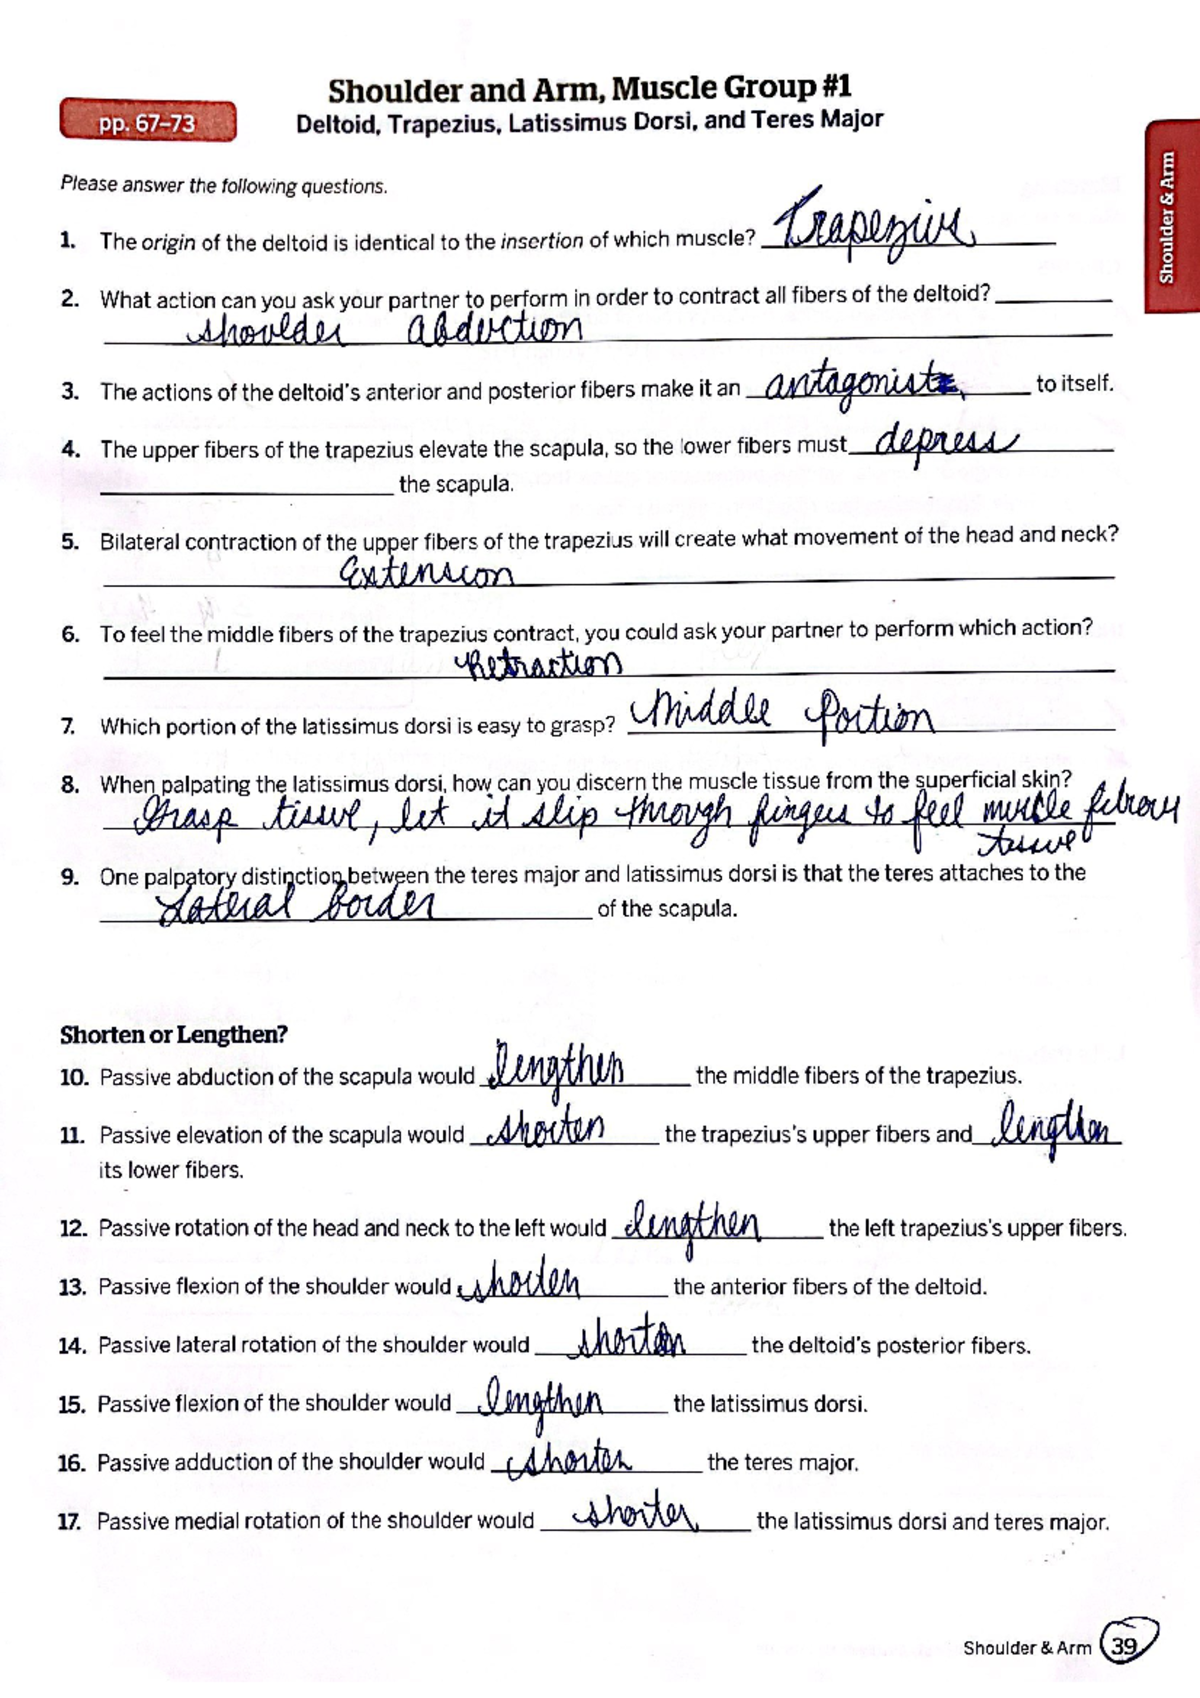 Shoulder and Arm, Muscle Group #1
pp. 67–73
Deltoid, Trapezius, Latissimus Dorsi, and Teres Major
Shoulder & Arm
Please answer the following questions.
1. The origin of the deltoid is identical to the insertion of which muscle? Trapezius
2. What action can you ask your partner to perform in order to contract all fibers of the deltoid?
shoulder abduction
3. The actions of the deltoid's anterior and posterior fibers make it an antagonist to itself.
4. The upper fibers of the trapezius elevate the scapula, so the lower fibers must depress
the scapula.
5. Bilateral contraction of the upper fibers of the trapezius will create what movement of the head and neck?
Extension
6. To feel the middle fibers of the trapezius contract, you could ask your partner to perform which action?
Retraction
7. Which portion of the latissimus dorsi is easy to grasp? Middle Portion
8. When palpating the latissimus dorsi, how can you discern the muscle tissue from the superficial skin?
Grasp tissue, let it slip through fingers to feel muscle fibrous
tissue
9. One palpatory distinction between the teres major and latissimus dorsi is that the teres attaches to the
Lateral Border of the scapula.
Shorten or Lengthen?
10. Passive abduction of the scapula would lengthen the middle fibers of the trapezius.
11. Passive elevation of the scapula would shorten the trapezius's upper fibers and lengthen
its lower fibers.
12. Passive rotation of the head and neck to the left would lengthen the left trapezius's upper fibers.
13. Passive flexion of the shoulder would shorten the anterior fibers of the deltoid.
14. Passive lateral rotation of the shoulder would shorten the deltoid's posterior fibers.
15. Passive flexion of the shoulder would lengthen the latissimus dorsi.
16. Passive adduction of the shoulder would shorten the teres major.
17. Passive medial rotation of the shoulder would shorten the latissimus dorsi and teres major.
Shoulder & Arm 39